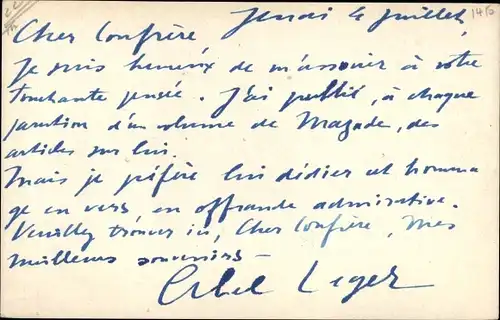 Jeudi 4 Juillet,
Cher Confrère
Je suis heureux de m'associer à votre
touchante pensée. J'ai publié, à chaque
parution d'un volume de Magade, des
articles sur lui.
Mais je préfère lui dédier cet homma
ge en vers, en offrande admirative.
Veuillez trouver ici, Cher Confrère, mes
meilleurs souvenirs —
Abel Leger